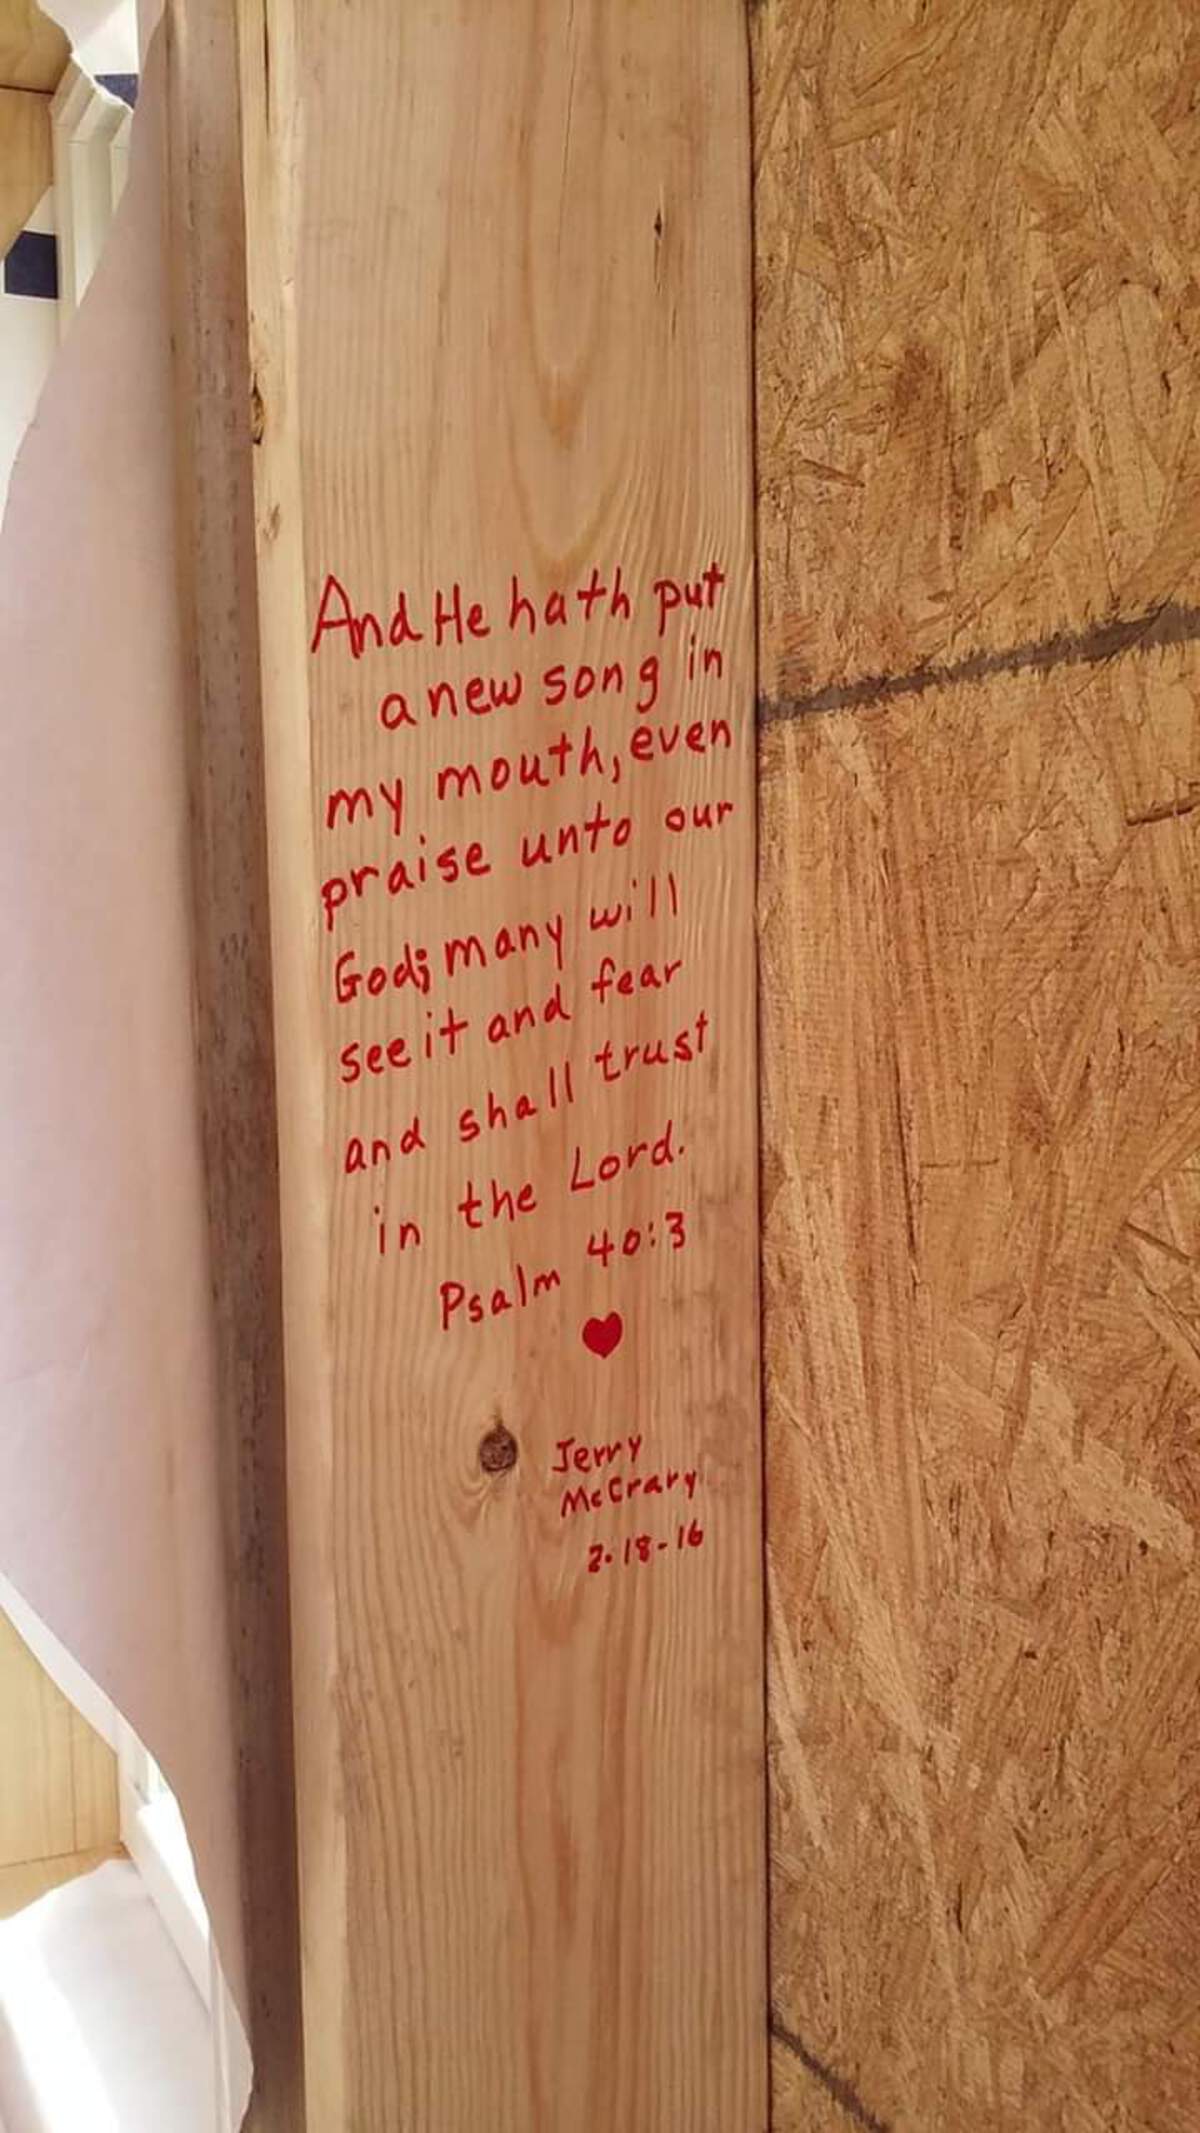 And He hath put
a new song in
my mouth, even
praise unto our
God; many will
see it and fear
and shall trust
in the Lord.
Psalm 40:3
Jerry
McCrary
2-18-16